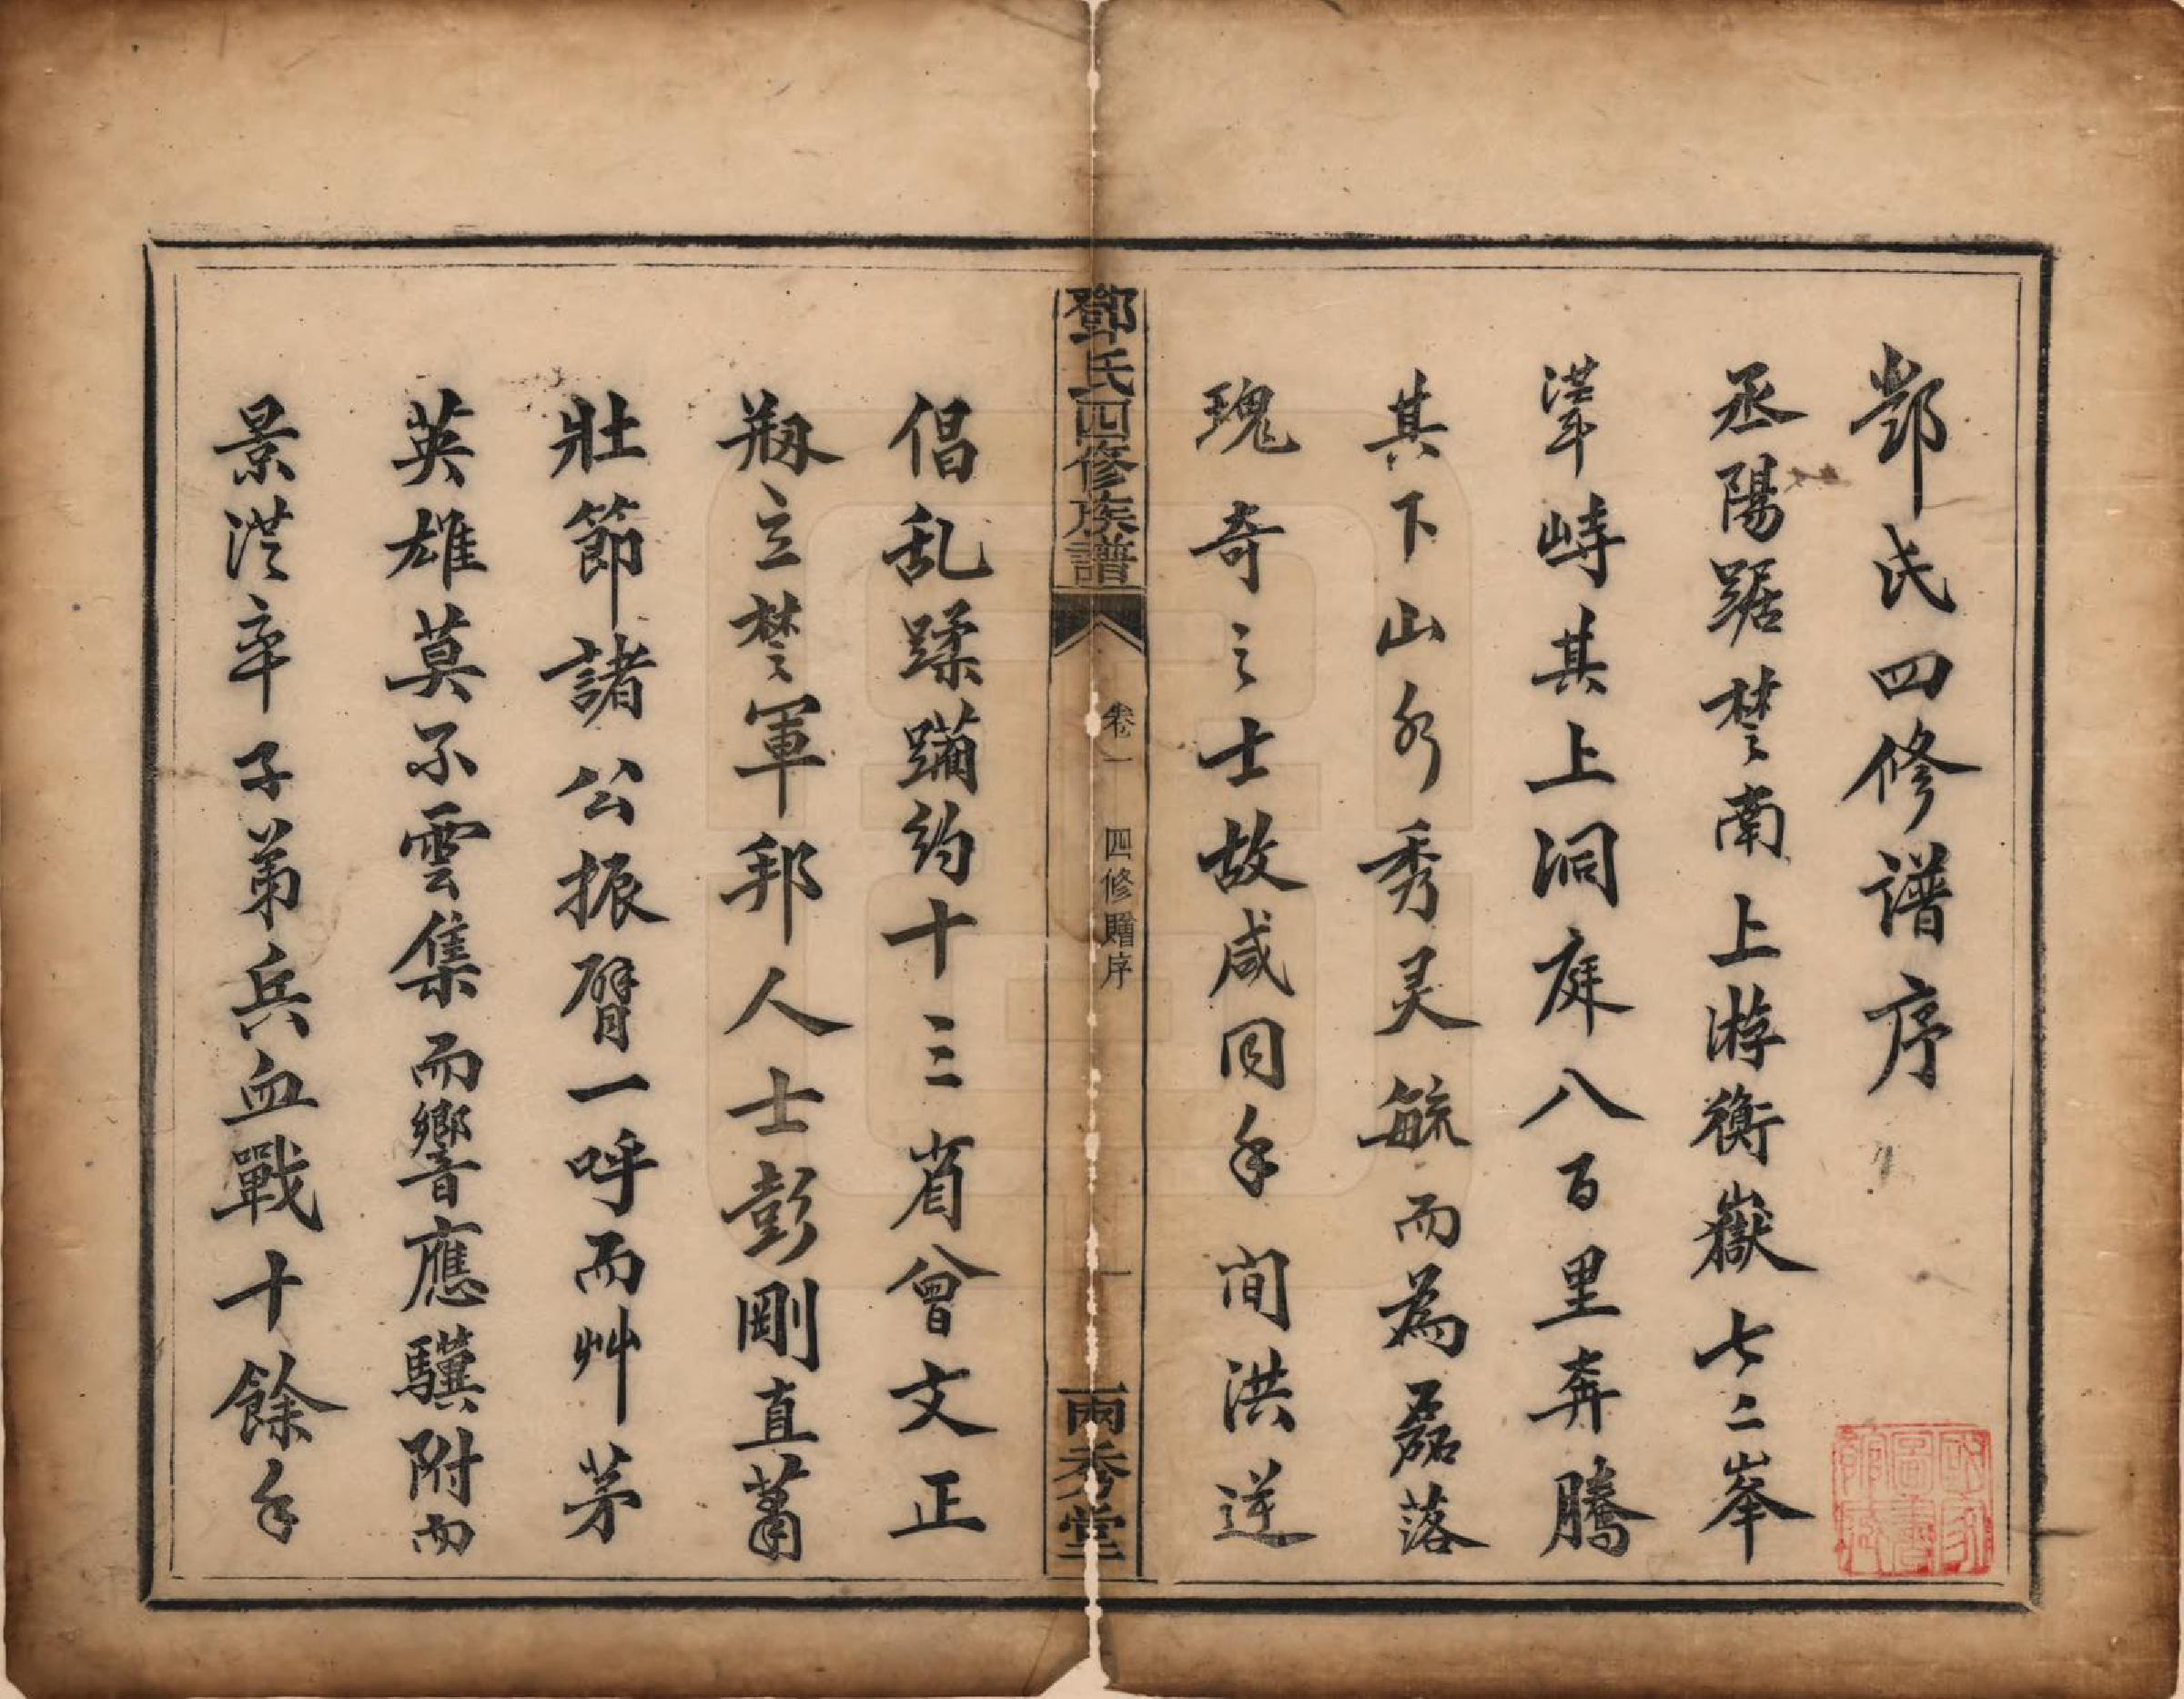 鄧氏四修譜序
丞陽踞楚南上游衡嶽七二峯
峙其上洞庭八百里奔騰
其下山水秀灵毓而為磊落
瑰奇之士故咸同年间洪逆
鄧氏四修族譜
卷一
四修贈序
一
兩秀堂
倡乱蹂躪约十三省曾文正
剏立楚軍邦人士彭剛直蕭
壯節諸公振臂一呼而艸茅
英雄莫不雲集而響應驥附而
景從率子弟兵血戰十餘年
國家圖書館藏